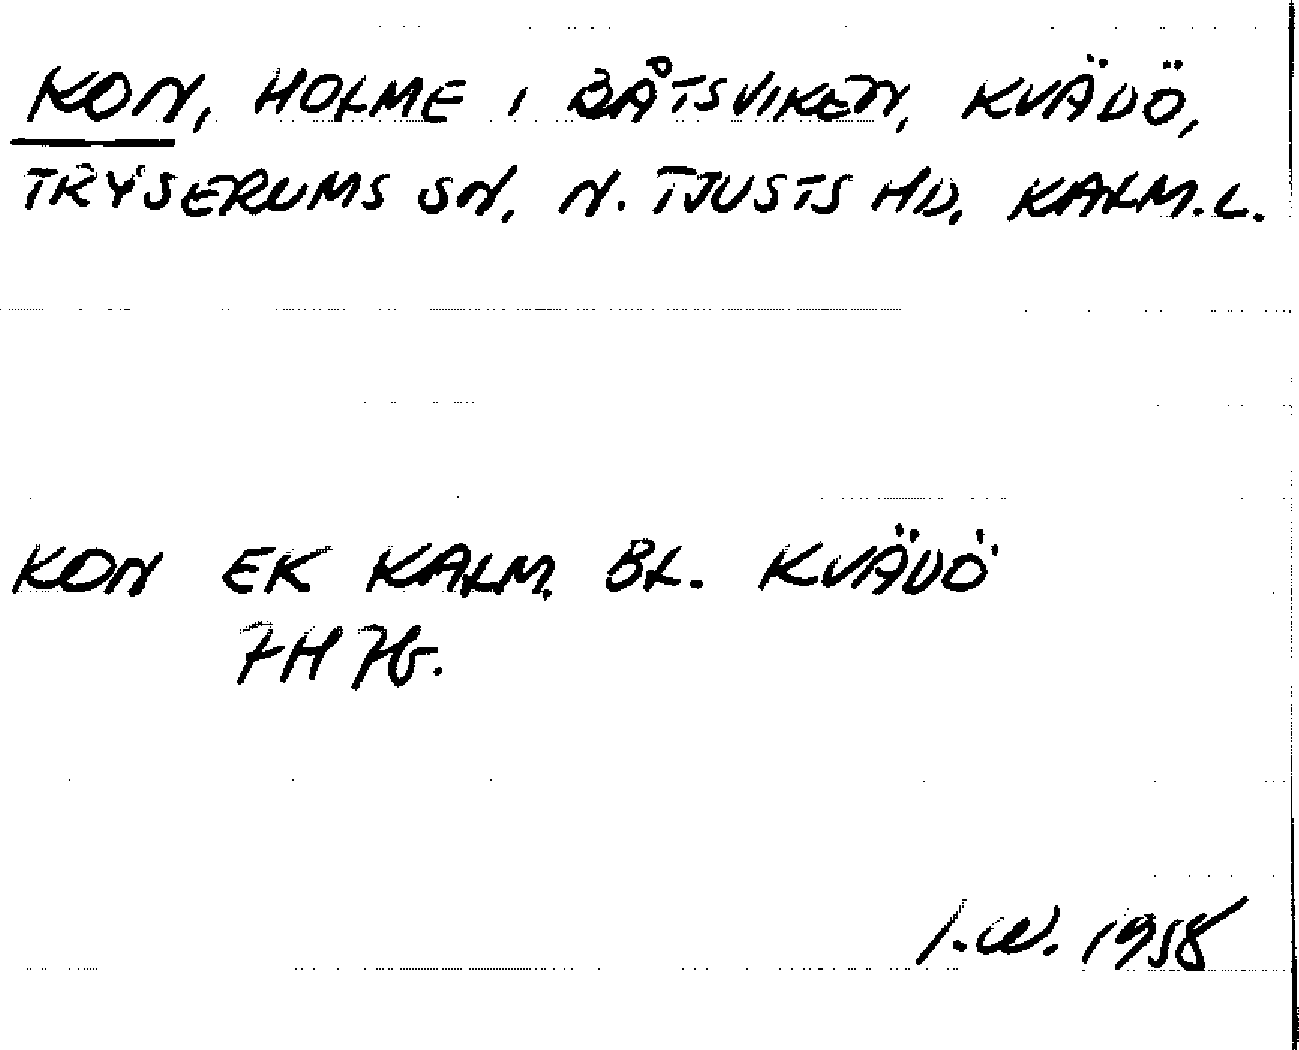 KON, HOLME I BÅTSVIKEN, KVÄDÖ,
TRYSERUMS SN, N. TJUSTS HD, KALM. L.
KON EK KALM. BL. KVÄDÖ
7H 7b.
I.W. 1958